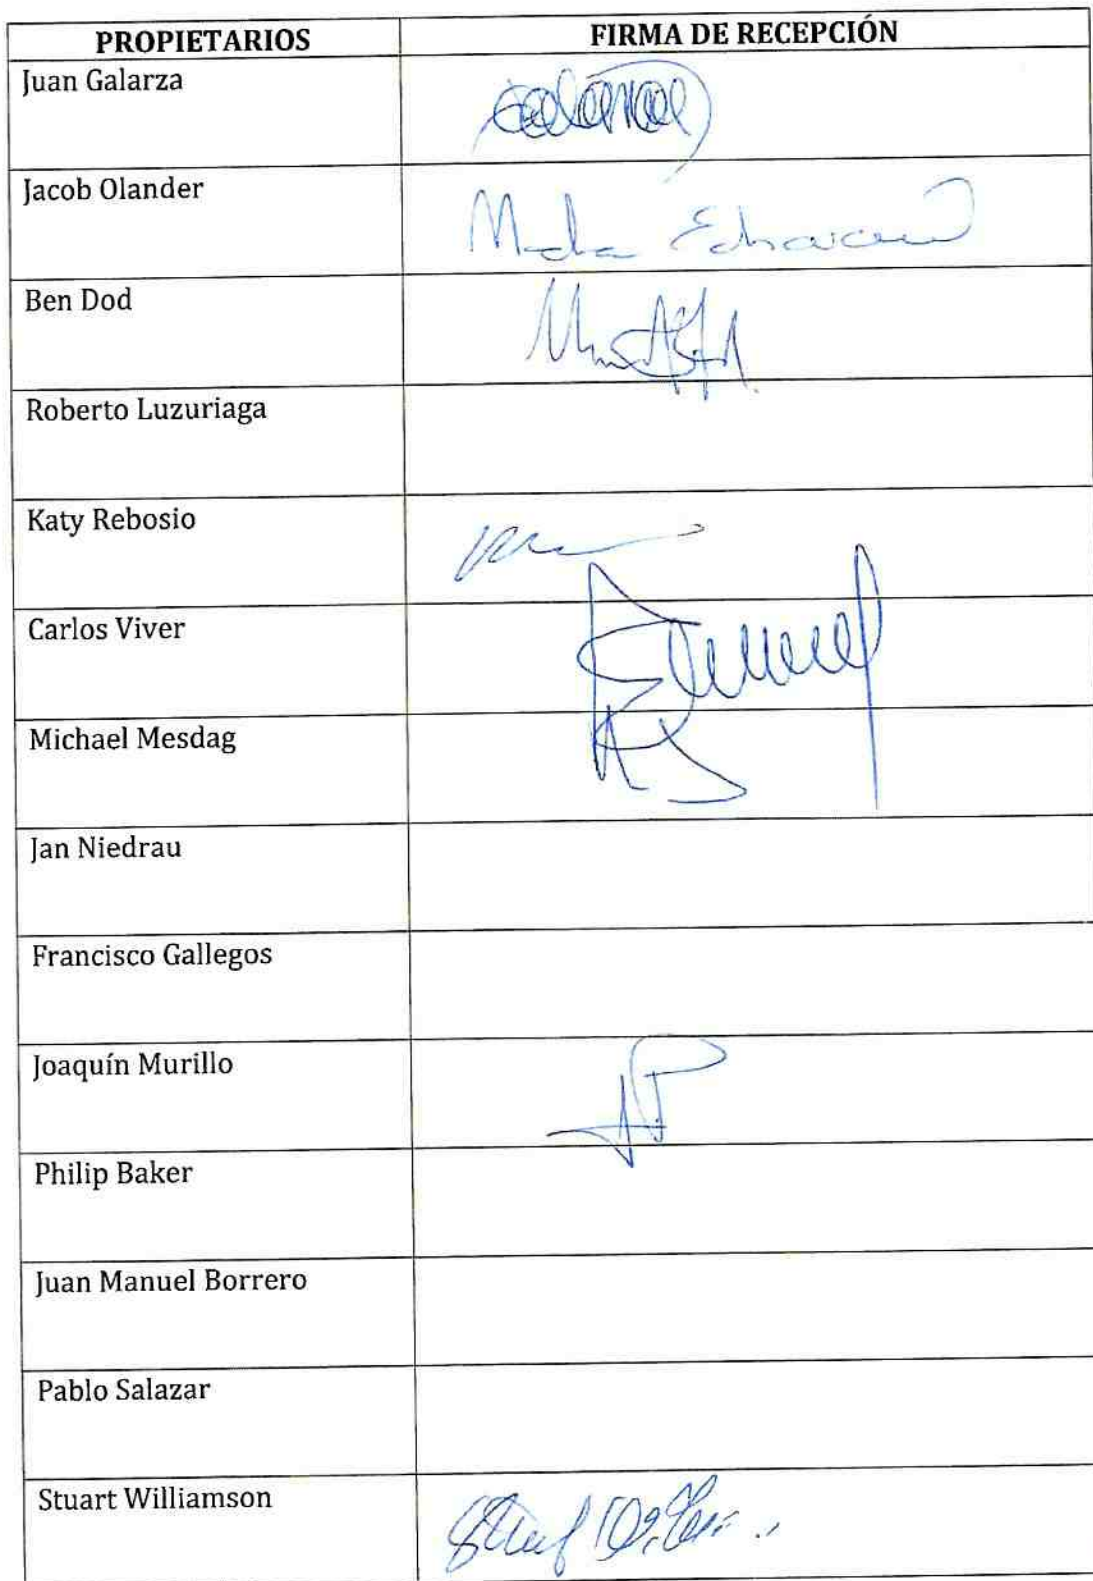 PROPIETARIOS
FIRMA DE RECEPCIÓN
Juan Galarza
Jacob Olander
Ben Dod
Roberto Luzuriaga
Katy Rebosio
Carlos Viver
Michael Mesdag
Jan Niedrau
Francisco Gallegos
Joaquín Murillo
Philip Baker
Juan Manuel Borrero
Pablo Salazar
Stuart Williamson